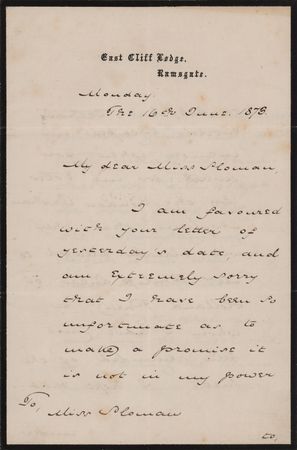 East Cliff Lodge,
Ramsgate.
Monday
The 16th June. 1873.
My dear Miss Sloman,
I am favoured
with your letter of
yesterday's date, and
am extremely sorry
that I have been so
unfortunate as to
make a promise it
is not in my power
To, Miss Sloman
to,